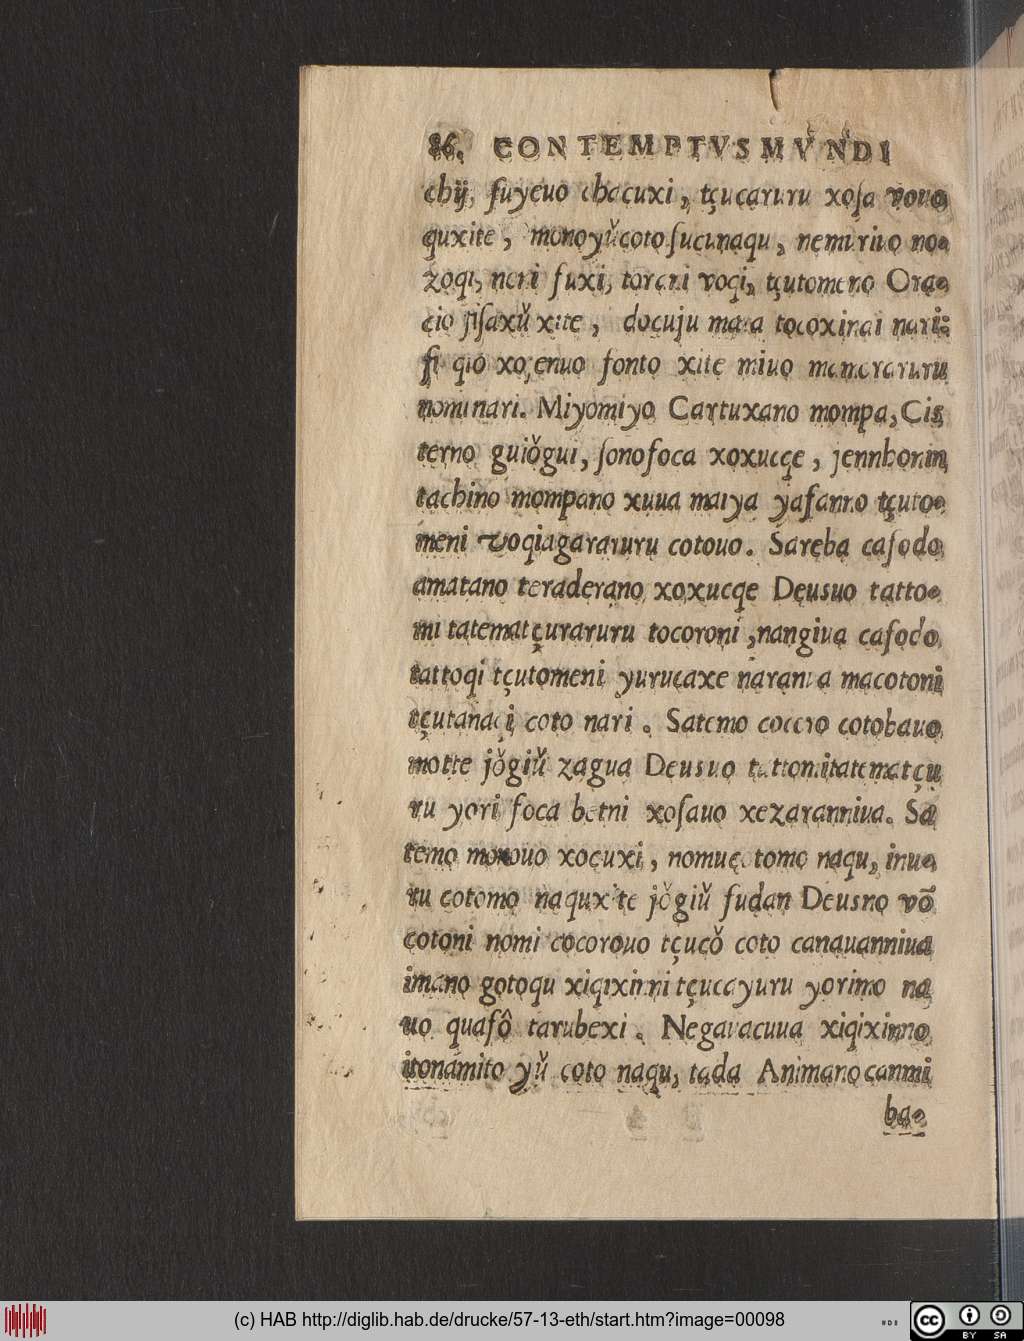 86. CONTEMPTVS MVNDI
chij, fuyeuo chacuxi, tçucaruru xoſa vouo
quxite, monoyŭ coto ſucunaqu, nemurivo no-
zoqi, neri fuxi, tareni voqi, tçutomeno Ora-
cio jiſaxŭ xite, docuju mata tocoxinai nari:
ſi qio xojenuo fonto xite miuo memeraruru
nominari. Miyomiyo Cartuxano mompa, Ciſ
terno guiǒgui, ſonofoca xoxucqe, jennhonin
tachino mompano xuua maiya yafanno tçuto-
meni voqiagararuru cotouo. Sareba caſodo
amatano teraderano xoxucqe Deusuo tatto-
mi tatematçuraruru tocoroni, nangiua caſodo
tattoqi tçutomeni yurucaxe naranua macotoni
tçutanaqi coto nari. Satemo cocoro cotobauo
motte jǒgiŭ zagua Deusuo tattomitatematçu
ru yori foca betni xoſauo xezaranniua. Sa
temo monouo xocuxi, nomucotomo naqu, inu-
ru cotomo naquxite jǒgiŭ fudan Deusno vō
cotoni nomi cocorouo tçucŏ coto canauanniua
imano gotoqu xiqixinni tçucayuru yorimo na
uo quafô tarubexi. Negauacuua xiqixinno
itonamito yŭ coto naqu, tada Animano canmi
ba-
(c) HAB http://diglib.hab.de/drucke/57-13-eth/start.htm?image=00098
cc BY SA